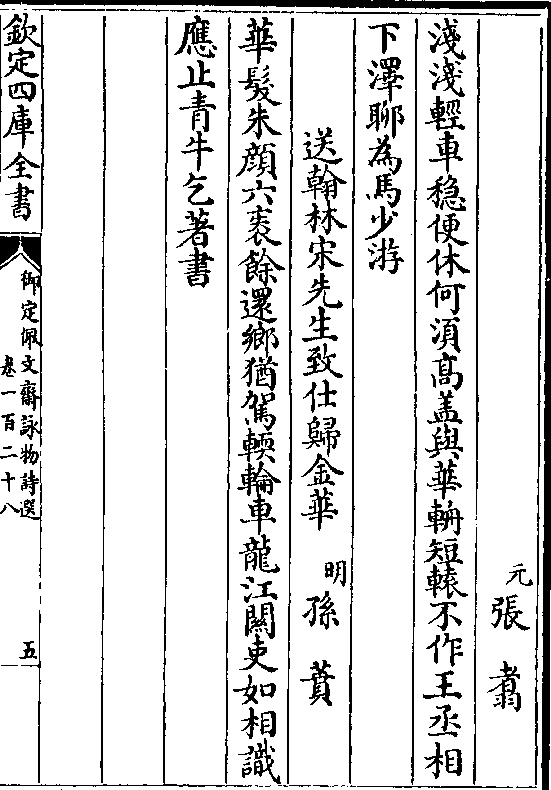 元張翥
淺淺輕車穩便休何須髙盖與華輈短轅不作王丞相
下澤聊為馬少游
送翰林宋先生致仕歸金華 明孫蕡
華髮朱顔六袠餘還鄉猶駕輭輪車龍江關吏如相識
應止青牛乞著書
欽定四庫全書
御定佩文齋詠物詩選
卷一百二十八
五